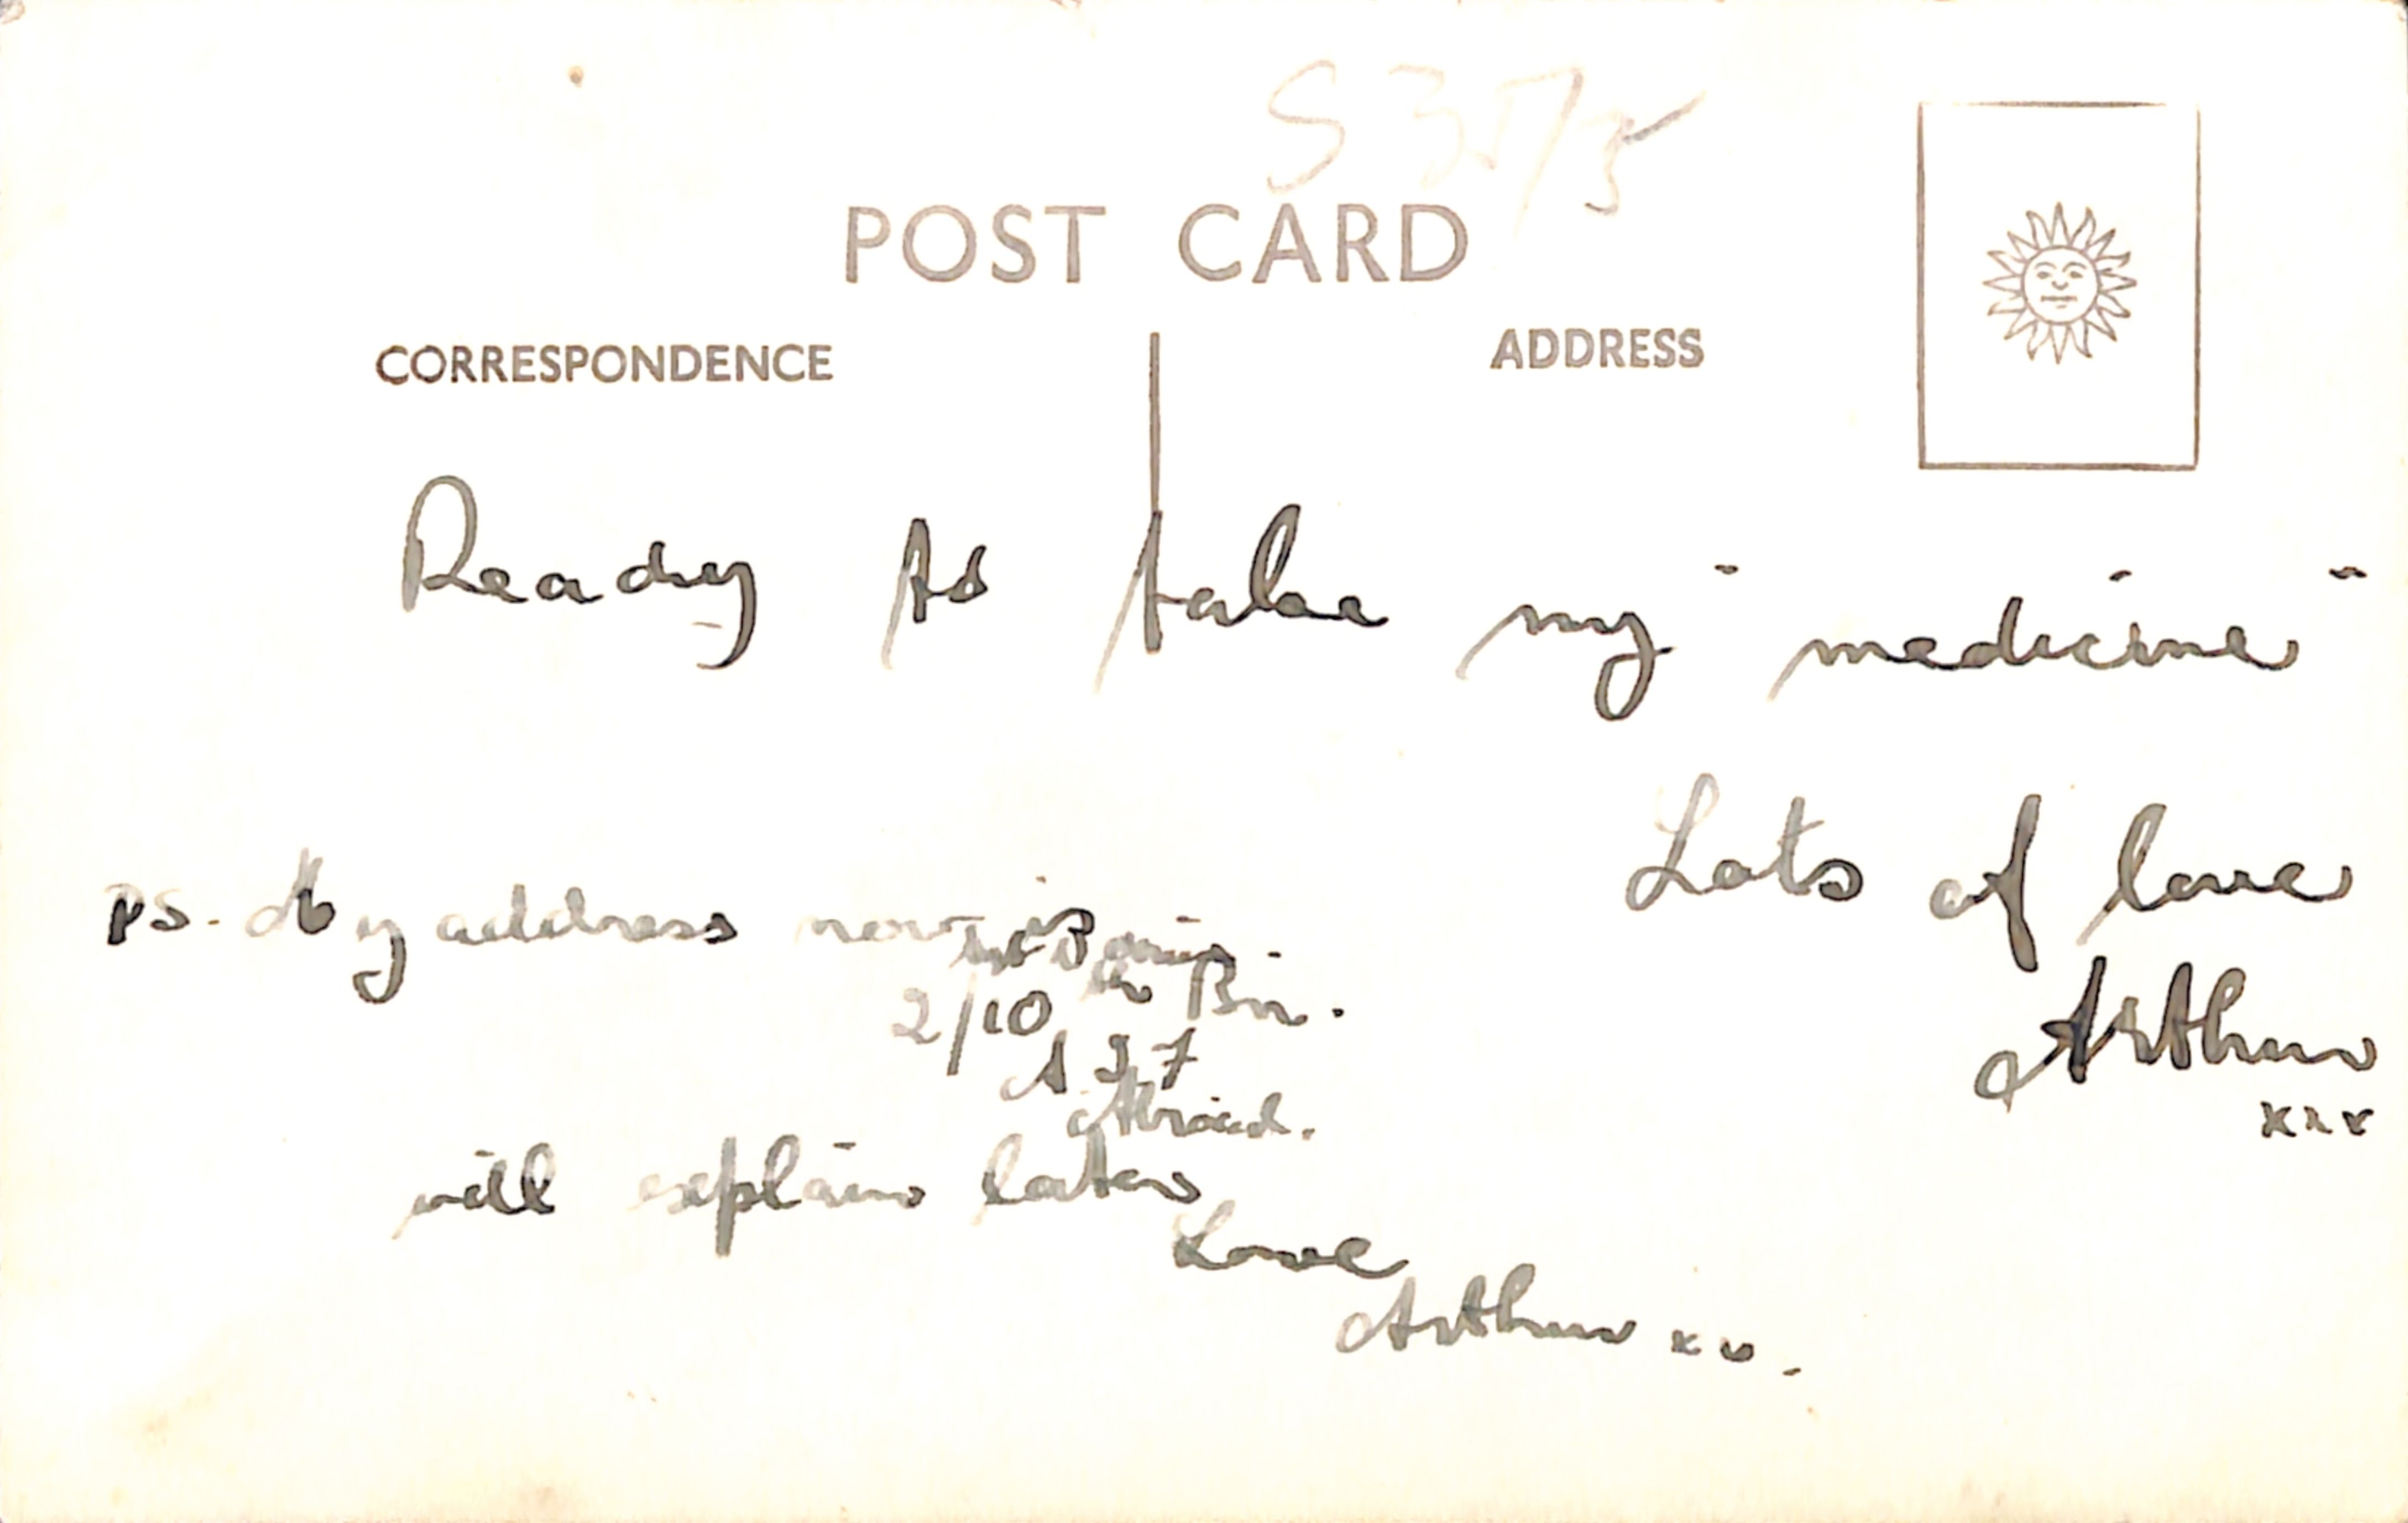 S 35/5
POST CARD
CORRESPONDENCE
ADDRESS
Ready to take my "medicine"
Lots of love
Arthur
xxx
PS. My address now is
2/10 Bn.
A 27
Abroad.
will explain later
Love
Arthur xx.